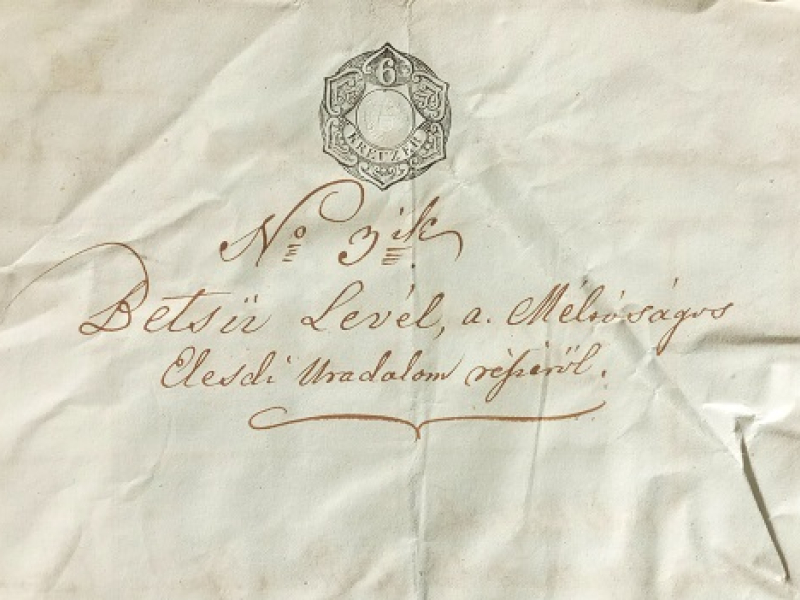 6
KREUZER
No 3ik
Betsü Levél, a. Méltóságos
Elesdi Uradalom részéről.